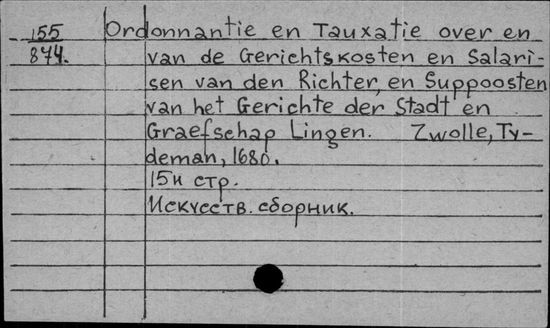 155 Ordonnantie en Tauxatie over en
874. van de Gerichtskosten en Salari-
sen van den Richter, en Suppoosten
van het Gerichte der Stadt en
Graefschap Lingen. Zwolle, Ty-
deman, 1680.
15н стр.
Искусств. сборник.